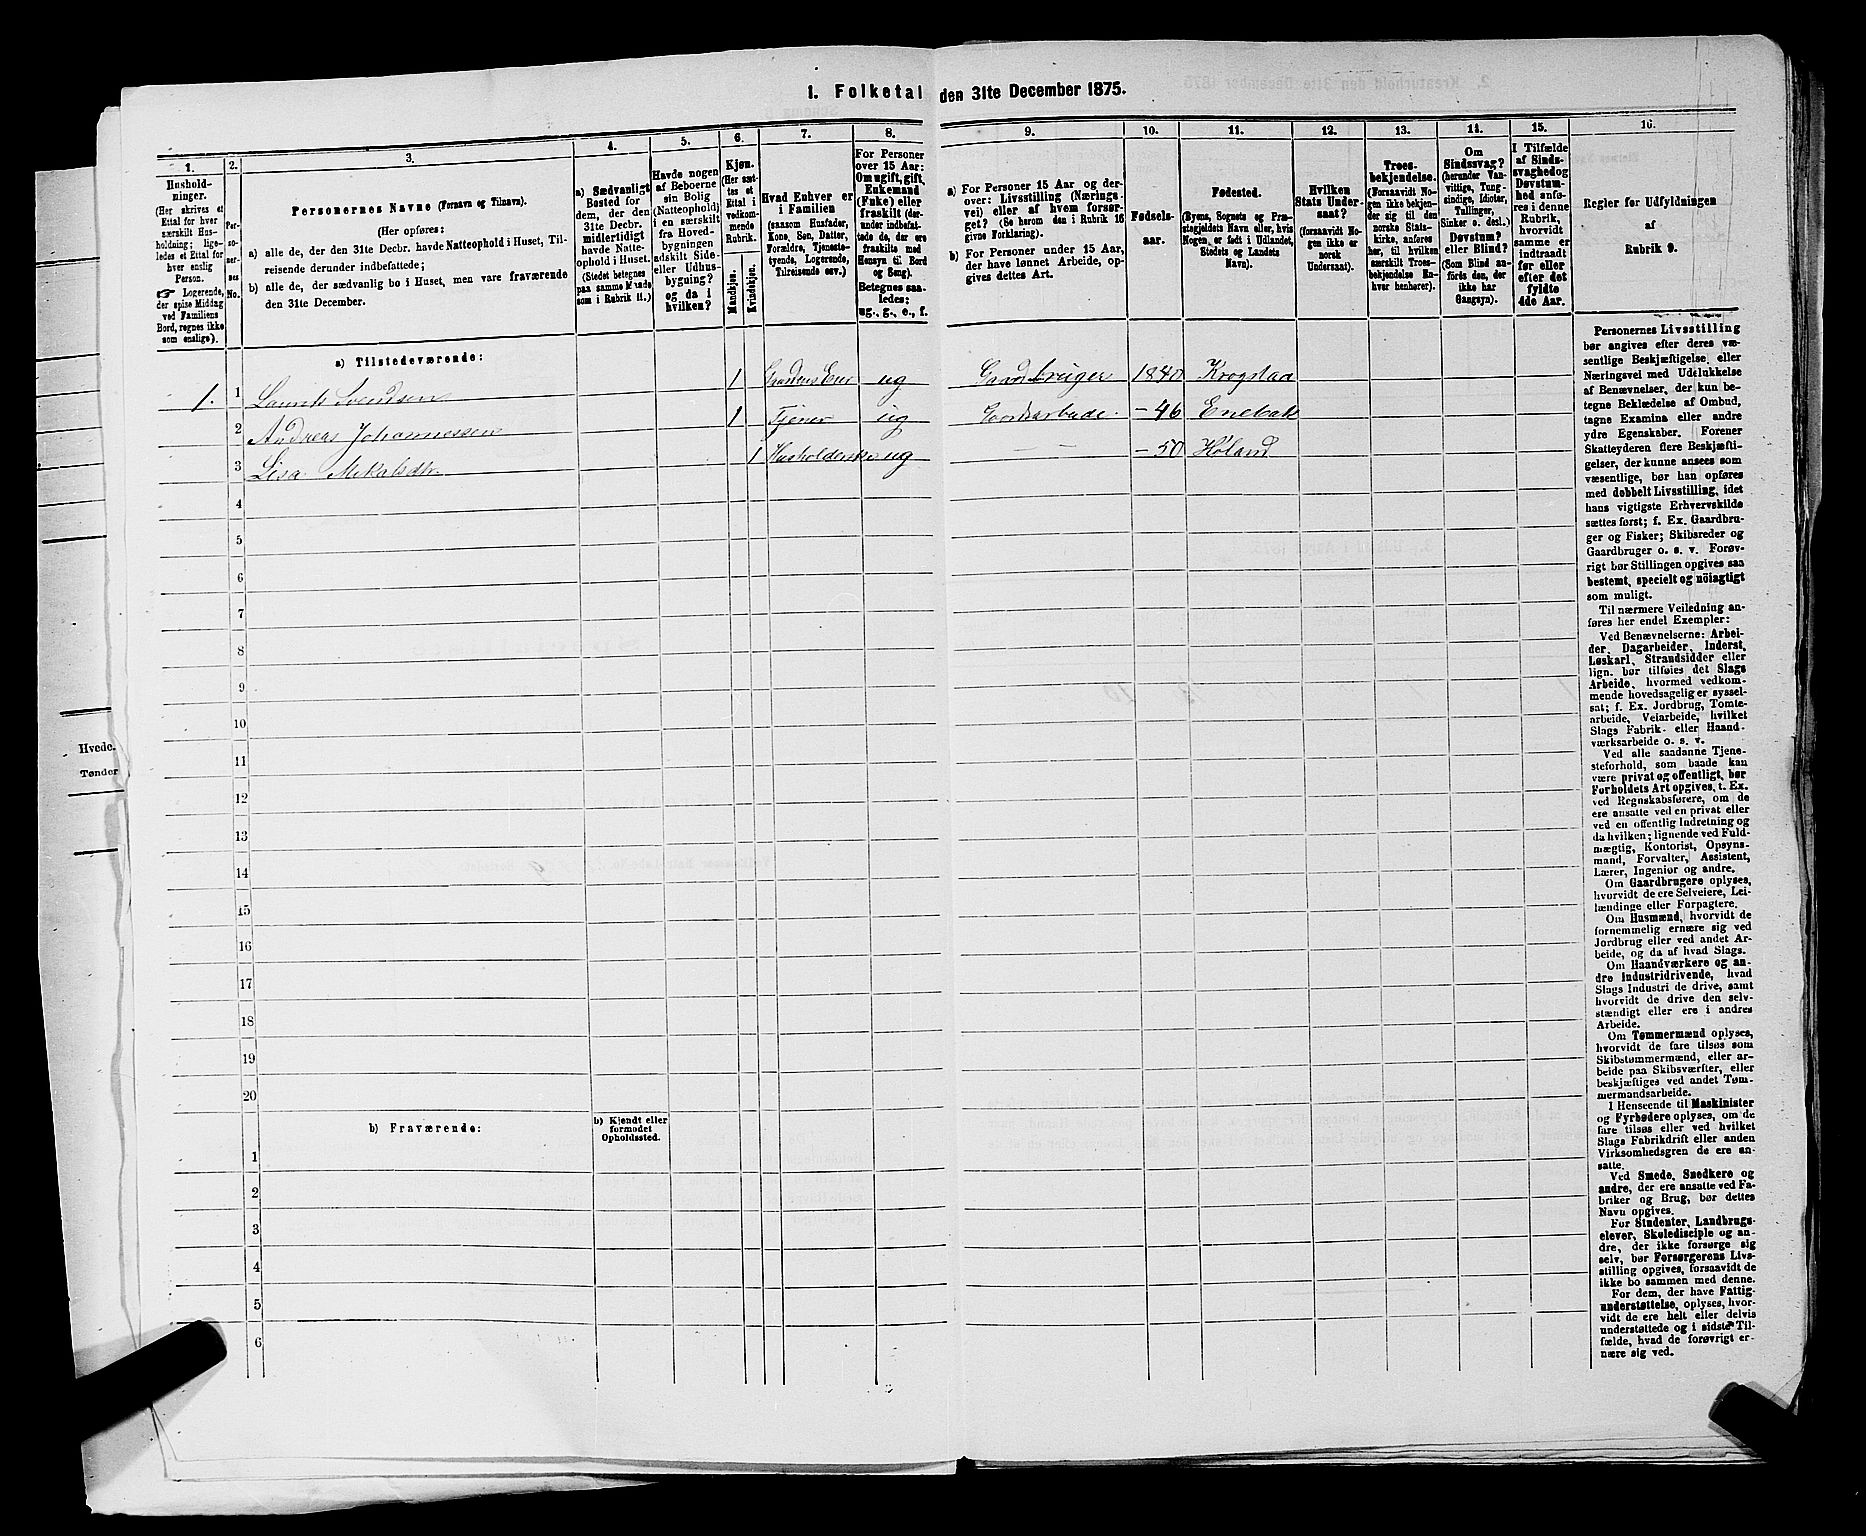 1. Folketal den 31te December 1875.
1. 2. 3. 4. 5. 6. 7. 8. 9. 10. 11. 12. 13. 14. 15. 16.
Hushold-
ninger.
(Her skrives et
Ettal for hver
særskilt Hus-
holdning; lige-
ledes et Ettal for
hver enslig
Person.
☞ Logerende,
der spise Middag
ved Familiens
Bord, regnes ikke
som enslige).
Per-
so-
ner-
nes
No.
Personernes Navne (Fornavn og Tilnavn).
(Her opføres:
a) alle de, der den 31te Decbr. havde Natteophold i Huset, Til-
reisende derunder indbefattede;
b) alle de, der sædvanlig bo i Huset, men vare fraværende
den 31te December.
a) Sædvanligt
Bosted for
dem, der den
31te Decbr.
midlertidigt
havde Natte-
ophold i Huset.
(Stedet betegnes
paa samme Maade
som i Rubrik 11.)
Havde nogen
af Beboerne
sin Bolig
(Natteophold)
i en særskilt
fra Hoved-
bygningen
adskilt Side-
eller Udhus-
bygning?
og da i
hvilken?
Kjøn.
(Her sæt-
tes et
Ettal i
vedkom-
mende
Rubrik.
Mandkjøn.
Kvindekjøn.
Hvad Enhver er
i Familien
(saasom Husfader,
Kone, Søn, Datter,
Forældre, Tjeneste-
tyende, Logerende,
Tilreisende osv.)
For Personer
over 15 Aar:
Om ugift, gift,
Enkemand
(Enke) eller
fraskilt (der-
under indbefat-
tede de, der ere
fraskilte med
Hensyn til Bord
og Seng).
Betegnes saa-
ledes:
ug., g., e., f.
a) For Personer 15 Aar og der-
over: Livsstilling (Nærings-
vei) eller af hvem forsør-
get? (Se herom den i Rubrik 16
givne Forklaring).
b) For Personer under 15 Aar,
der have lønnet Arbeide, op-
gives dettes Art.
Fødsels-
aar.
Fødested.
(Byens, Sognets og Præ-
stegjeldets Navn eller, hvis
Nogen er født i Udlandet,
Stedets og Landets
Navn).
Hvilken
Stats Under-
saat?
(forsaavidt No-
gen ikke er
norsk
Undersaat).
Troes-
bekjendelse.
(Forsaavidt No-
gen ikke bekjen-
der sig til den
norske Stats-
kirke, anføres
her, til hvilken
særskilt Troes-
bekjendelse En-
hver henhører).
Om
Sindssvag?
(herunder Van-
vittige, Tung-
sindige, Idioter,
Tullinger,
Sinker o. desl.)
Døvstum?
eller Blind?
(Som Blind an-
føres den, der
ikke har
Gangsyn).
I Tilfælde
af Sinds-
svaghed og
Døvstum-
hed anfø-
res i denne
Rubrik,
hvorvidt
samme er
indtraadt
før eller
efter det
fyldte
4de Aar.
Regler for Udfyldningen
af
Rubrik 9.
a) Tilstedeværende:
1. 1 Laurits Svendsen 1 Gaardens Eier ug Gaardbruger 1840 Krogstad
2 Andreas Johannessen 1 Tjener ug Gaardsarbede - 46 Enebak
3 Lisa Mikalsdtr 1 Husholderske ug — - 50 Høland
4
5
6
7
8
9
10
11
12
13
14
15
16
17
18
19
20
b) Fraværende:
b) Kjendt eller
formodet
Opholdssted.
1
2
3
4
5
6
Personernes Livsstilling
bør angives efter deres væ-
sentlige Beskjæftigelse eller
Næringsvei med Udelukkelse
af Benævnelser, der kun be-
tegne Beklædelse af Ombud,
tagne Examina eller andre
ydre Egenskaber. Forener
Skatteyderen flere Beskjæfti-
gelser, der kunne ansees som
væsentlige, bør han opføres
med dobbelt Livsstilling, idet
hans vigtigste Erhvervskilde
sættes først; f. Ex. Gaardbru-
ger og Fisker; Skibsreder og
Gaardbruger o. s. v. Forøv-
rigt bør Stillingen opgives saa
bestemt, specielt og nöiagtigt
som muligt.
Til nærmere Veiledning an-
føres her endel Exempler:
Ved Benævnelserne: Arbei-
der, Dagarbeider, Inderst,
Løskarl, Strandsidder eller
lign. bør tilføies det Slags
Arbeide, hvormed vedkom-
mende hovedsagelig er syssel-
sat; f. Ex. Jordbrug, Tomte-
arbeide, Veiarbeide, hvilket
Slags Fabrik- eller Haand-
værksarbeide o. s. v.
Ved alle saadanne Tjene-
steforhold, som baade kan
være privat og offentligt, bør
Forholdets Art opgives, t. Ex.
ved Regnskabsførere, om de
ere ansatte ved en privat eller
ved en offentlig Indretning og
da hvilken; lignende ved Fuld-
mægtig, Kontorist, Opsyns-
mand, Forvalter, Assistent,
Lærer, Ingeniør og andre.
Om Gaardbrugere oplyses,
hvorvidt de ere Selveiere, Lei-
lændinge eller Forpagtere.
Om Husmænd, hvorvidt de
fornemmelig ernære sig ved
Jordbrug eller ved andet Ar-
beide, og da af hvad Slags.
Om Haandværkere og an-
dre Industridrivende, hvad
Slags Industri de drive, samt
hvorvidt de drive den selv-
stændigt eller ere i andres
Arbeide.
Om Tømmermænd oplyses,
hvorvidt de fare tilsøs som
Skibstømmermænd, eller ar-
beide paa Skibsværfter, eller
beskjæftiges ved andet Tøm-
mermandsarbeide.
I Henseende til Maskinister
og Fyrbødere oplyses, om de
fare tilsøs eller ved hvilket
Slags Fabrikdrift eller anden
Virksomhedsgren de ere an-
satte.
Ved Smede, Snedkere og
andre, der ere ansatte ved Fa-
briker og Brug, bør dettes
Navn opgives.
For Studenter, Landbrugs-
elever, Skoledisciple og an-
dre, der ikke forsørge sig
selv, bør Forsørgerens Livs-
stilling opgives, forsaavidt de
ikke bo sammen med denne.
For dem, der have Fattig-
understøttelse, oplyses, hvor-
vidt de ere helt eller delvis
understøttede og i sidste Til-
fælde, hvad de forøvrigt er-
nære sig ved.
Hvede.
Tønder